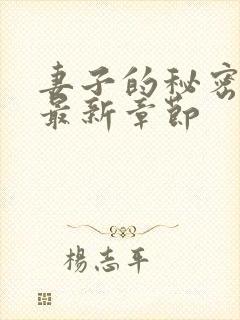 妻子的秘密
最新章節
楊志平